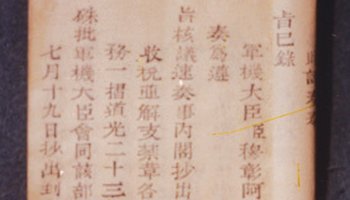 旨已錄
軍機大臣臣穆彰阿
奏爲遵
旨核議速奏事內閣抄出
收稅運解支禁章各
務一摺道光二十三
硃批軍機大臣會同該部
七月十九日抄出到